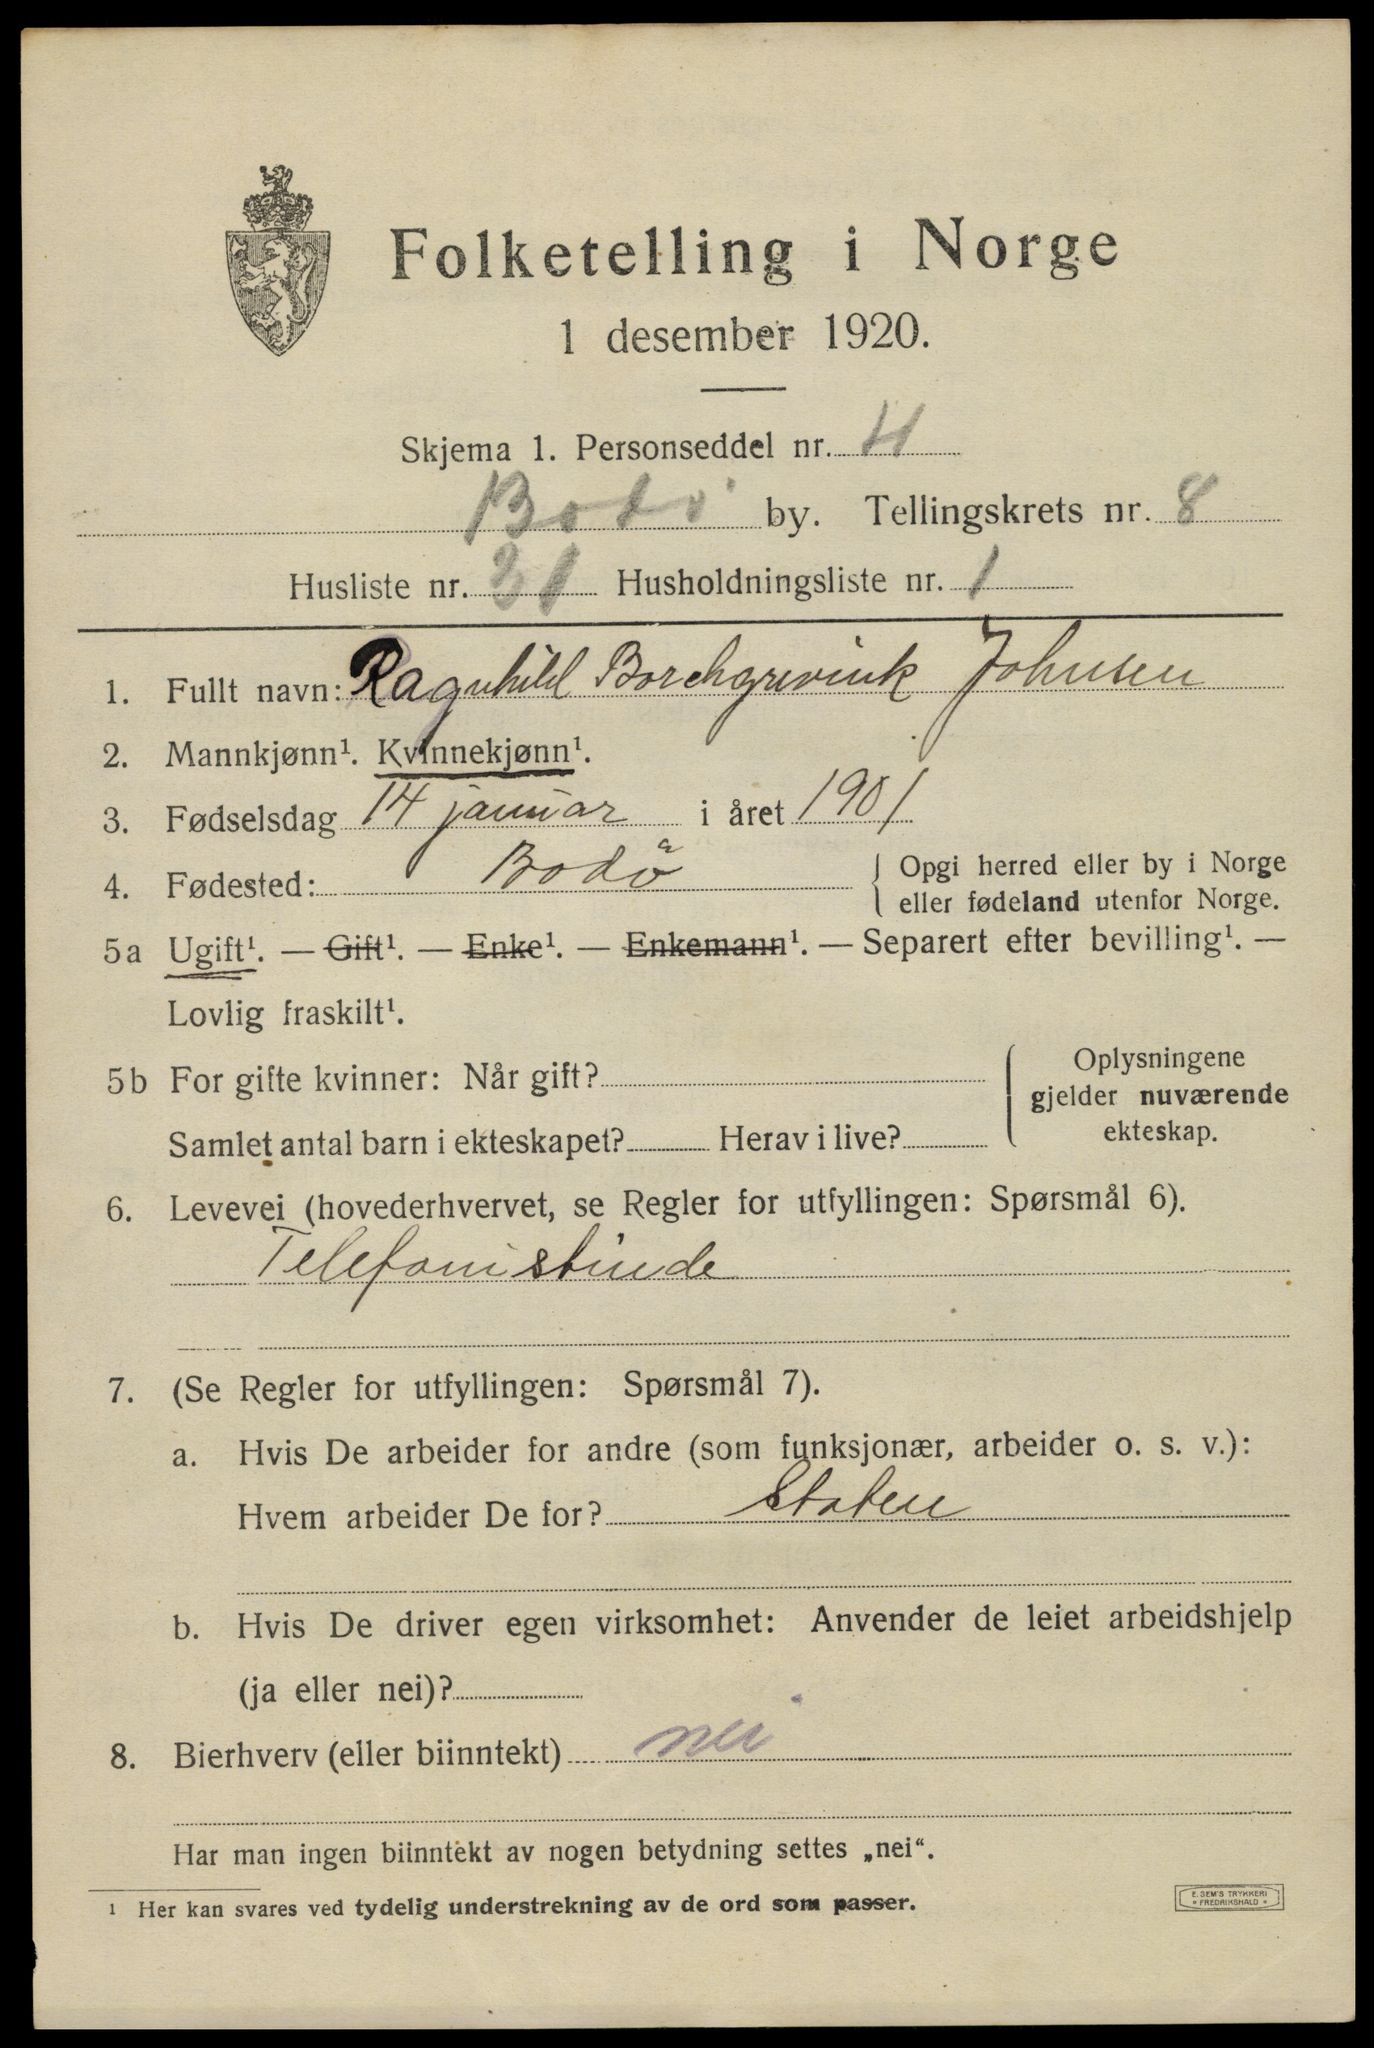 Folketelling i Norge
1 desember 1920.
Skjema 1. Personseddel nr. 4
Bodø by. Tellingskrets nr. 8
Husliste nr. 31 Husholdningsliste nr. 1
1. Fullt navn: Ragnhild Borchgrevink Johnsen
2. Mannkjønn¹. Kvinnekjønn¹.
3. Fødselsdag 14 januar i året 1901
4. Fødested: Bodø { Opgi herred eller by i Norge
eller fødeland utenfor Norge.
5a Ugift¹. — Gift¹. — Enke¹. — Enkemann¹. — Separert efter bevilling¹. —
Lovlig fraskilt¹.
5b For gifte kvinner: Når gift? { Oplysningene
gjelder nuværende
Samlet antal barn i ekteskapet? Herav i live? ekteskap.
6. Levevei (hovederhvervet, se Regler for utfyllingen: Spørsmål 6).
Telefonistinde
7. (Se Regler for utfyllingen: Spørsmål 7).
a. Hvis De arbeider for andre (som funksjonær, arbeider o. s. v.):
Hvem arbeider De for? Staten
b. Hvis De driver egen virksomhet: Anvender de leiet arbeidshjelp
(ja eller nei)?
8. Bierhverv (eller biinntekt) nei
Har man ingen biinntekt av nogen betydning settes „nei“.
¹ Her kan svares ved tydelig understrekning av de ord som passer.
E. SEM'S TRYKKERI
* FREDRIKSHALD *